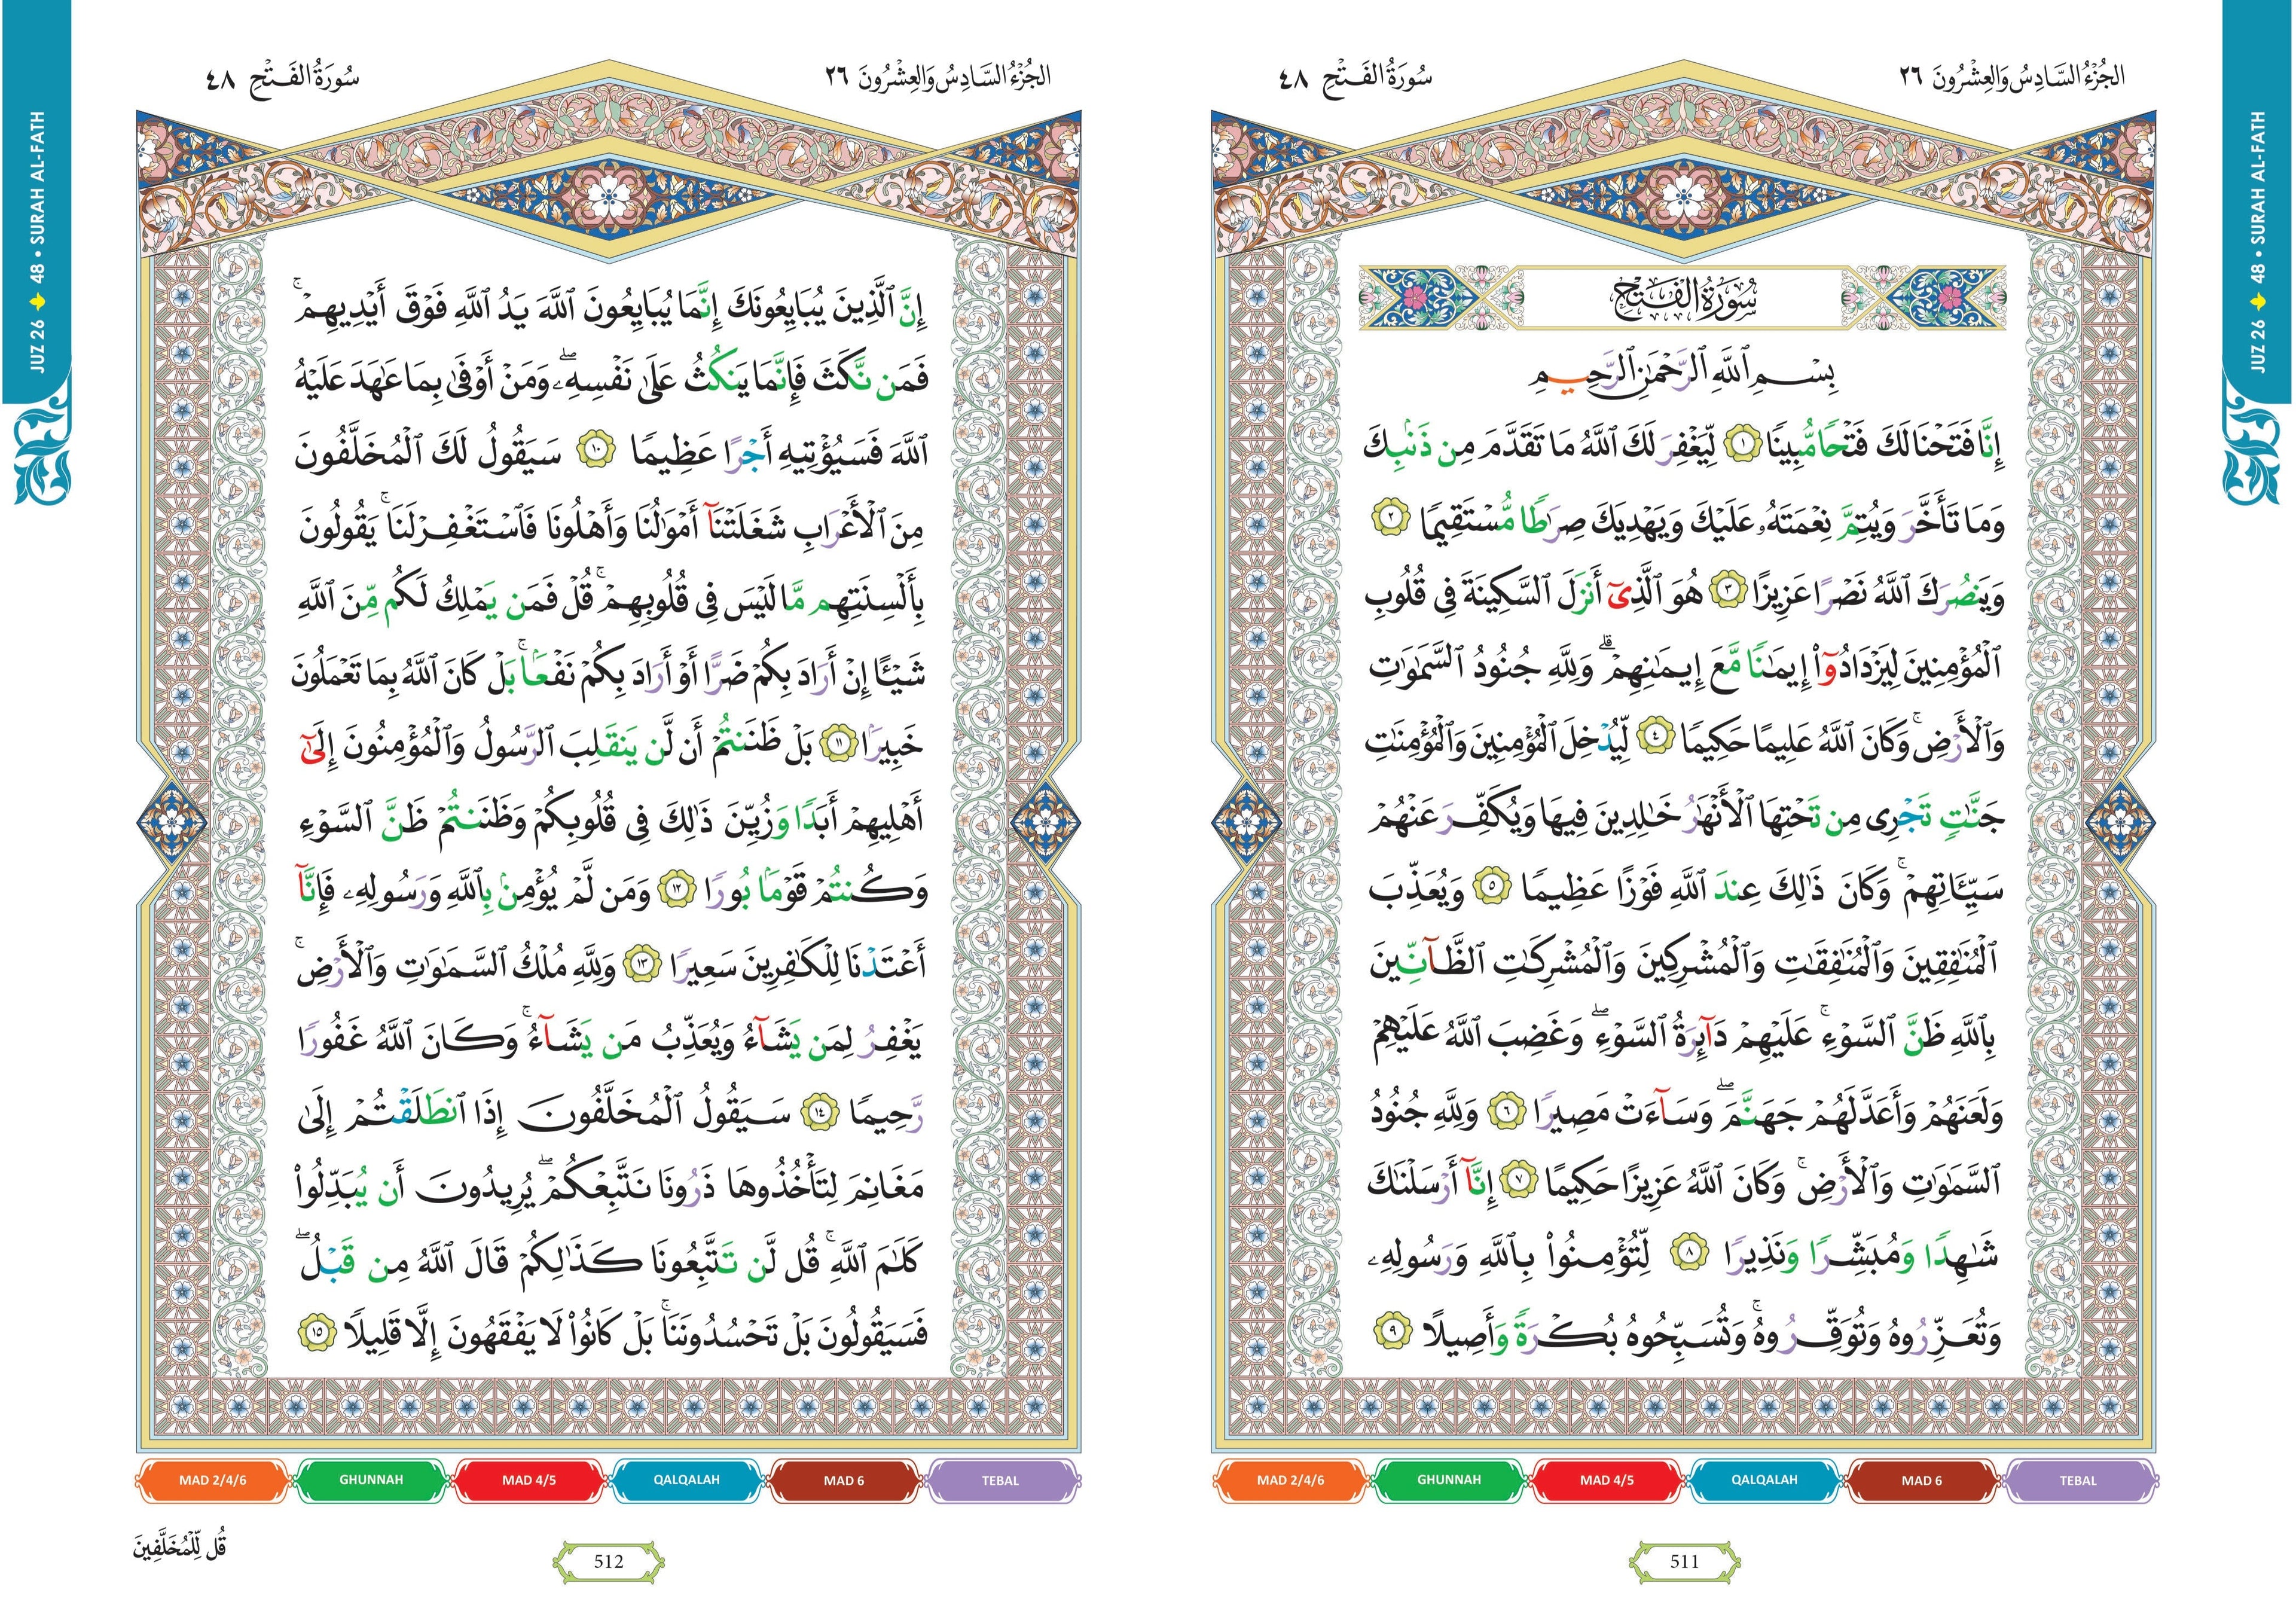 JUZ 26 48 • SURAH AL-FATH
الجُزْءُ السَّادِسُ وَالعِشْرُونَ ٢٦
سُورَةُ الفَتْحِ ٤٨
سُورَةُ الفَتْحِ
بِسْمِ ٱللَّهِ ٱلرَّحْمَٰنِ ٱلرَّحِيمِ
إِنَّا فَتَحْنَا لَكَ فَتْحًا مُّبِينًا ١ لِّيَغْفِرَ لَكَ ٱللَّهُ مَا تَقَدَّمَ مِن ذَنۢبِكَ
وَمَا تَأَخَّرَ وَيُتِمَّ نِعْمَتَهُۥ عَلَيْكَ وَيَهْدِيَكَ صِرَٰطًا مُّسْتَقِيمًا ٢
وَيَنصُرَكَ ٱللَّهُ نَصْرًا عَزِيزًا ٣ هُوَ ٱلَّذِىٓ أَنزَلَ ٱلسَّكِينَةَ فِى قُلُوبِ
ٱلْمُؤْمِنِينَ لِيَزْدَادُوٓا۟ إِيمَٰنًا مَّعَ إِيمَٰنِهِمْ ۗ وَلِلَّهِ جُنُودُ ٱلسَّمَٰوَٰتِ
وَٱلْأَرْضِ ۚ وَكَانَ ٱللَّهُ عَلِيمًا حَكِيمًا ٤ لِّيُدْخِلَ ٱلْمُؤْمِنِينَ وَٱلْمُؤْمِنَٰتِ
جَنَّٰتٍ تَجْرِى مِن تَحْتِهَا ٱلْأَنْهَٰرُ خَٰلِدِينَ فِيهَا وَيُكَفِّرَ عَنْهُمْ
سَيِّـَٔاتِهِمْ ۚ وَكَانَ ذَٰلِكَ عِندَ ٱللَّهِ فَوْزًا عَظِيمًا ٥ وَيُعَذِّبَ
ٱلْمُنَٰفِقِينَ وَٱلْمُنَٰفِقَٰتِ وَٱلْمُشْرِكِينَ وَٱلْمُشْرِكَٰتِ ٱلظَّآنِّينَ
بِٱللَّهِ ظَنَّ ٱلسَّوْءِ ۚ عَلَيْهِمْ دَآئِرَةُ ٱلسَّوْءِ ۖ وَغَضِبَ ٱللَّهُ عَلَيْهِمْ
وَلَعَنَهُمْ وَأَعَدَّ لَهُمْ جَهَنَّمَ ۖ وَسَآءَتْ مَصِيرًا ٦ وَلِلَّهِ جُنُودُ
ٱلسَّمَٰوَٰتِ وَٱلْأَرْضِ ۚ وَكَانَ ٱللَّهُ عَزِيزًا حَكِيمًا ٧ إِنَّآ أَرْسَلْنَٰكَ
شَٰهِدًا وَمُبَشِّرًا وَنَذِيرًا ٨ لِّتُؤْمِنُوا۟ بِٱللَّهِ وَرَسُولِهِۦ
وَتُعَزِّرُوهُ وَتُوَقِّرُوهُ ۚ وَتُسَبِّحُوهُ بُكْرَةً وَأَصِيلًا ٩
MAD 2/4/6 GHUNNAH MAD 4/5 QALQALAH MAD 6 TEBAL
511
JUZ 26 48 • SURAH AL-FATH
الجُزْءُ السَّادِسُ وَالعِشْرُونَ ٢٦
سُورَةُ الفَتْحِ ٤٨
إِنَّ ٱلَّذِينَ يُبَايِعُونَكَ إِنَّمَا يُبَايِعُونَ ٱللَّهَ يَدُ ٱللَّهِ فَوْقَ أَيْدِيهِمْ ۚ
فَمَن نَّكَثَ فَإِنَّمَا يَنكُثُ عَلَىٰ نَفْسِهِۦ ۖ وَمَنْ أَوْفَىٰ بِمَا عَٰهَدَ عَلَيْهُ
ٱللَّهَ فَسَيُؤْتِيهِ أَجْرًا عَظِيمًا ١٠ سَيَقُولُ لَكَ ٱلْمُخَلَّفُونَ
مِنَ ٱلْأَعْرَابِ شَغَلَتْنَآ أَمْوَٰلُنَا وَأَهْلُونَا فَٱسْتَغْفِرْ لَنَا ۚ يَقُولُونَ
بِأَلْسِنَتِهِم مَّا لَيْسَ فِى قُلُوبِهِمْ ۚ قُلْ فَمَن يَمْلِكُ لَكُم مِّنَ ٱللَّهِ
شَيْـًٔا إِنْ أَرَادَ بِكُمْ ضَرًّا أَوْ أَرَادَ بِكُمْ نَفْعًۢا ۚ بَلْ كَانَ ٱللَّهُ بِمَا تَعْمَلُونَ
خَبِيرًۢا ١١ بَلْ ظَنَنتُمْ أَن لَّن يَنقَلِبَ ٱلرَّسُولُ وَٱلْمُؤْمِنُونَ إِلَىٰٓ
أَهْلِيهِمْ أَبَدًا وَزُيِّنَ ذَٰلِكَ فِى قُلُوبِكُمْ وَظَنَنتُمْ ظَنَّ ٱلسَّوْءِ
وَكُنتُمْ قَوْمًۢا بُورًا ١٢ وَمَن لَّمْ يُؤْمِنۢ بِٱللَّهِ وَرَسُولِهِۦ فَإِنَّآ
أَعْتَدْنَا لِلْكَٰفِرِينَ سَعِيرًا ١٣ وَلِلَّهِ مُلْكُ ٱلسَّمَٰوَٰتِ وَٱلْأَرْضِ ۚ
يَغْفِرُ لِمَن يَشَآءُ وَيُعَذِّبُ مَن يَشَآءُ ۚ وَكَانَ ٱللَّهُ غَفُورًا
رَّحِيمًا ١٤ سَيَقُولُ ٱلْمُخَلَّفُونَ إِذَا ٱنطَلَقْتُمْ إِلَىٰ
مَغَانِمَ لِتَأْخُذُوهَا ذَرُونَا نَتَّبِعْكُمْ ۖ يُرِيدُونَ أَن يُبَدِّلُوا۟
كَلَٰمَ ٱللَّهِ ۚ قُل لَّن تَتَّبِعُونَا كَذَٰلِكُمْ قَالَ ٱللَّهُ مِن قَبْلُ ۖ
فَسَيَقُولُونَ بَلْ تَحْسُدُونَنَا ۚ بَلْ كَانُوا۟ لَا يَفْقَهُونَ إِلَّا قَلِيلًا ١٥
MAD 2/4/6 GHUNNAH MAD 4/5 QALQALAH MAD 6 TEBAL
قُل لِّلْمُخَلَّفِينَ
512